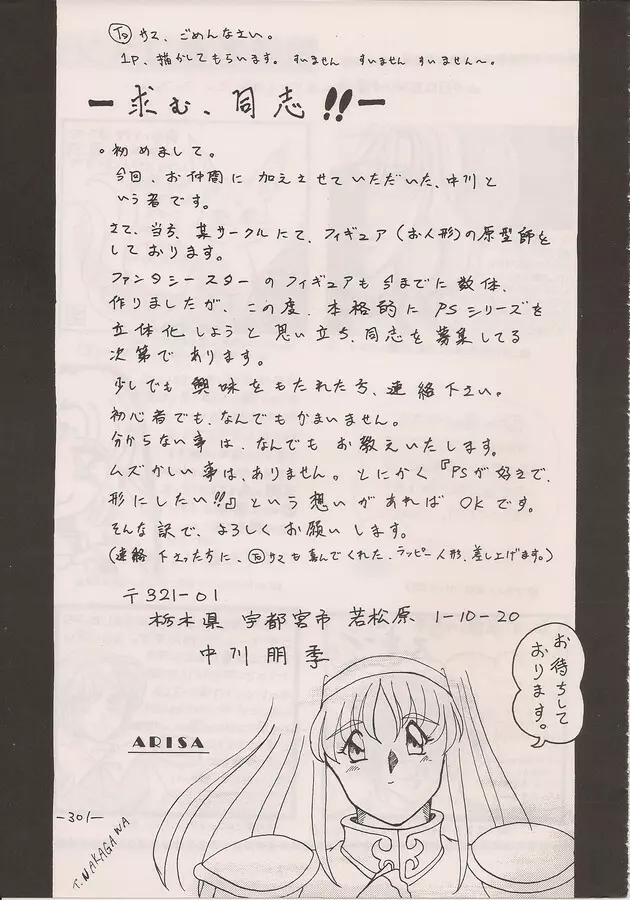 Toサマ、ごめんなさい。
1P、描かしてもらいます。すいません すいません すいません〜。
ー求む、同志!!ー
・初めまして。
今回、お仲間に加えさせていただいた、中川と
いう者です。
さて、当方、某サークルにて、フィギュア(お人形)の原型師を
しております。
ファンタシースターのフィギュアも今までに数体、
作りましたが、この度、本格的にPSシリーズを
立体化しようと思い立ち、同志を募集してる
次第であります。
少しでも興味をもたれた方、連絡下さい。
初心者でも、なんでもかまいません。
分からない事は、なんでもお教えいたします。
ムズかしい事は、ありません。とにかく『PSが好きで、
形にしたい!!』という想いがあればOKです。
そんな訳で、よろしくお願いします。
(連絡下さった方に、Toサマも喜んでくれた、ラッピー人形、差し上げます。)
〒321-01
栃木県 宇都宮市 若松原 1-10-20
中川朋季
お待ちして
おります。
ARISA
-301-
T.NAKAGAWA